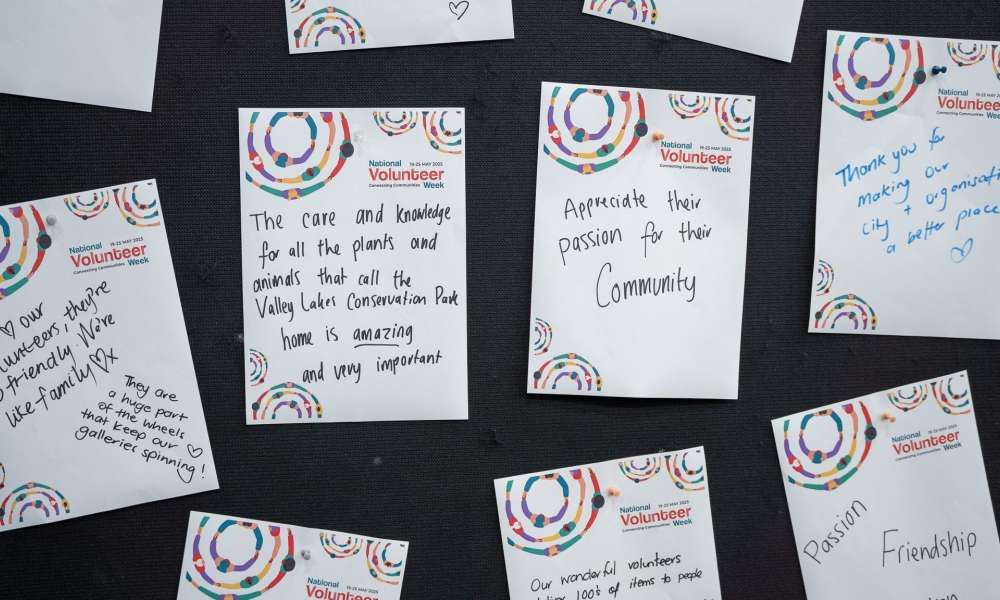 ♡
National
19-25 MAY 2025
Volunteer
Connecting Communities Week
The care and knowledge
for all the plants and
animals that call the
Valley Lakes Conservation Park
home is amazing
and very important
National
19-25 MAY 2025
Volunteer
Connecting Communities Week
Appreciate their
passion for their
Community
National
Volunteer
Week
Thank you for
making our
city +
a better place
♡
National
19-25 MAY 2025
Volunteer
Connecting Communities Week
♡ our
they're
friendly. We're
like family ♡x
They are
a huge part
of the wheels
that keep our
galleries spinning!
♡
National
19-25 MAY 2025
Volunteer
National
19-25 MAY 2025
Volunteer
Connecting Communities Week
Our wonderful volunteers
100's of items to people
National
19-25 MAY 2025
Volunteer
Connecting Communities Week
Passion
Friendship